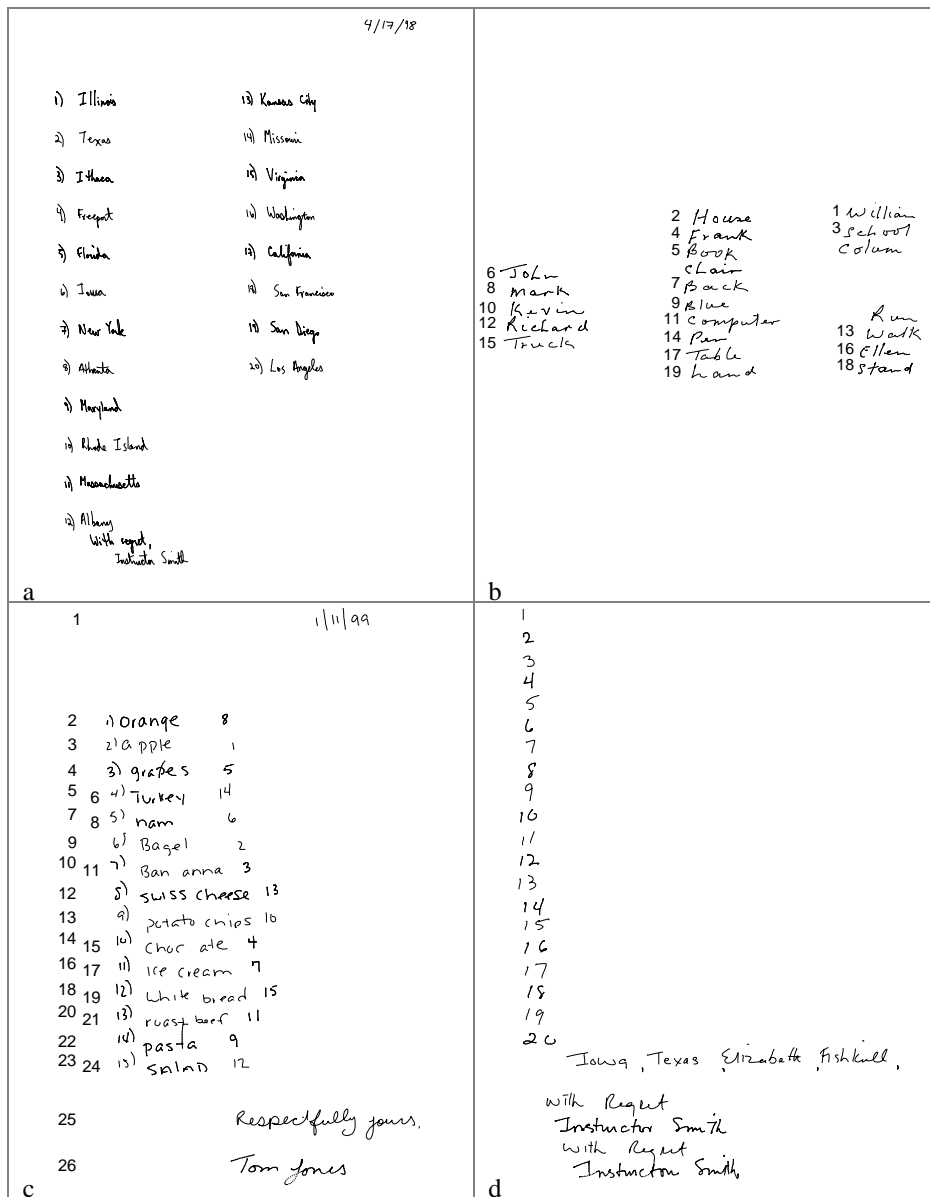 4/17/98
1) Illinois
2) Texas
3) Ithaca
4) Freeport
5) Florida
6) Iowa
7) New York
8) Atlanta
9) Maryland
10) Rhode Island
11) Massachusetts
12) Albany
With regret,
Instructor Smith
13) Kansas City
14) Missouri
15) Virginia
16) Washington
17) California
18) San Francisco
19) San Diego
20) Los Angeles
a
6 John
8 Mark
10 Kevin
12 Richard
15 Truck
2 House
4 Frank
5 Book
chair
7 Back
9 Blue
11 Computer
14 Pen
17 Table
19 hand
1 William
3 School
Colum
Run
13 Walk
16 Ellen
18 Stand
b
1 1/11/99
2 1) orange 8
3 2) apple 1
4 3) grapes 5
5 6 4) Turkey 14
7 8 5) ham 6
9 6) Bagel 2
10 11 7) Ban anna 3
12 8) swiss cheese 13
13 9) potato chips 10
14 15 10) choc ate 4
16 17 11) Ice cream 7
18 19 12) white bread 15
20 21 13) roast beef 11
22 14) pasta 9
23 24 15) SALAD 12
25 Respectfully yours,
26 Tom Jones
c
1
2
3
4
5
6
7
8
9
10
11
12
13
14
15
16
17
18
19
20
Iowa, Texas, Elizabeth, Fishkill,
with Regret
Instructor Smith
with Regret
Instructor Smith
d